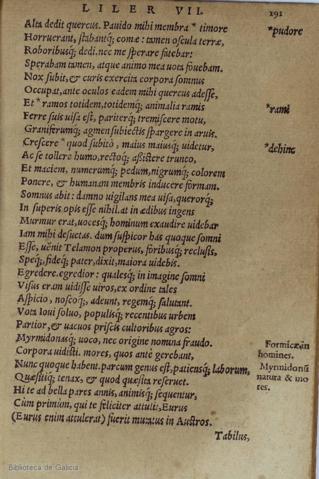 LIBER VII. 191
Alta dedit quercus. Pauido mihi membra * timore *pudore
Horruerant, stabantq; comæ: tamen oscula terræ,
Roboribusq; dedi. nec me sperare fatebar:
Sperabam tamen, atque animo mea uota fouebam.
Nox subit, & curis exercita corpora somnus
Occupat, ante oculos eadem mihi quercus adesse,
Et * ramos totidem, totidemq; animalia ramis *rami
Ferre suis uisa est, pariterq; tremiscere motu,
Graniferumq; agmen subiectis spargere in aruis.
Crescere * quod subitò, maius maiusq; uidetur, *dehinc
Ac se tollere humo, rectoq; assistere trunco,
Et maciem, numerumq; pedum, nigrumq; colorem
Ponere, & humanam membris inducere formam.
Somnus abit: damno uigilans mea uisa, querorq;
In superis opis esse nihil. at in ædibus ingens
Murmur erat, uocesq; hominum exaudire uidebar
Iam mihi desuetas. dum suspicor has quoque somni
Esse, uēnit Telamon properus, foribusq; reclusis,
Speq;, fideq; pater, dixit, maiora uidebis.
Egredere. egredior: qualesq; in imagine somni
Visus eram uidisse uiros, ex ordine tales
Aspicio, noscoq;, adeunt, regemq; salutant.
Vota Ioui soluo, populisq; recentibus urbem
Partior, & uacuos priscis cultoribus agros:
Myrmidonasq; uoco, nec origine nomina fraudo. Formicæ in
Corpora uidisti. mores, quos antè gerebant, homines.
Nunc quoque habent. parcum genus est, patiensq; laborum, Myrmidonū
Quæsitiq; tenax, & quod quæsita reseruet. natura & mo
Hi te ad bella pares annis, animisq; sequentur, res.
Cùm primùm, qui te feliciter attulit, Eurus
(Eurus enim attulerat) fuerit mutatus in Austros.
Talibus,
Biblioteca de Galicia